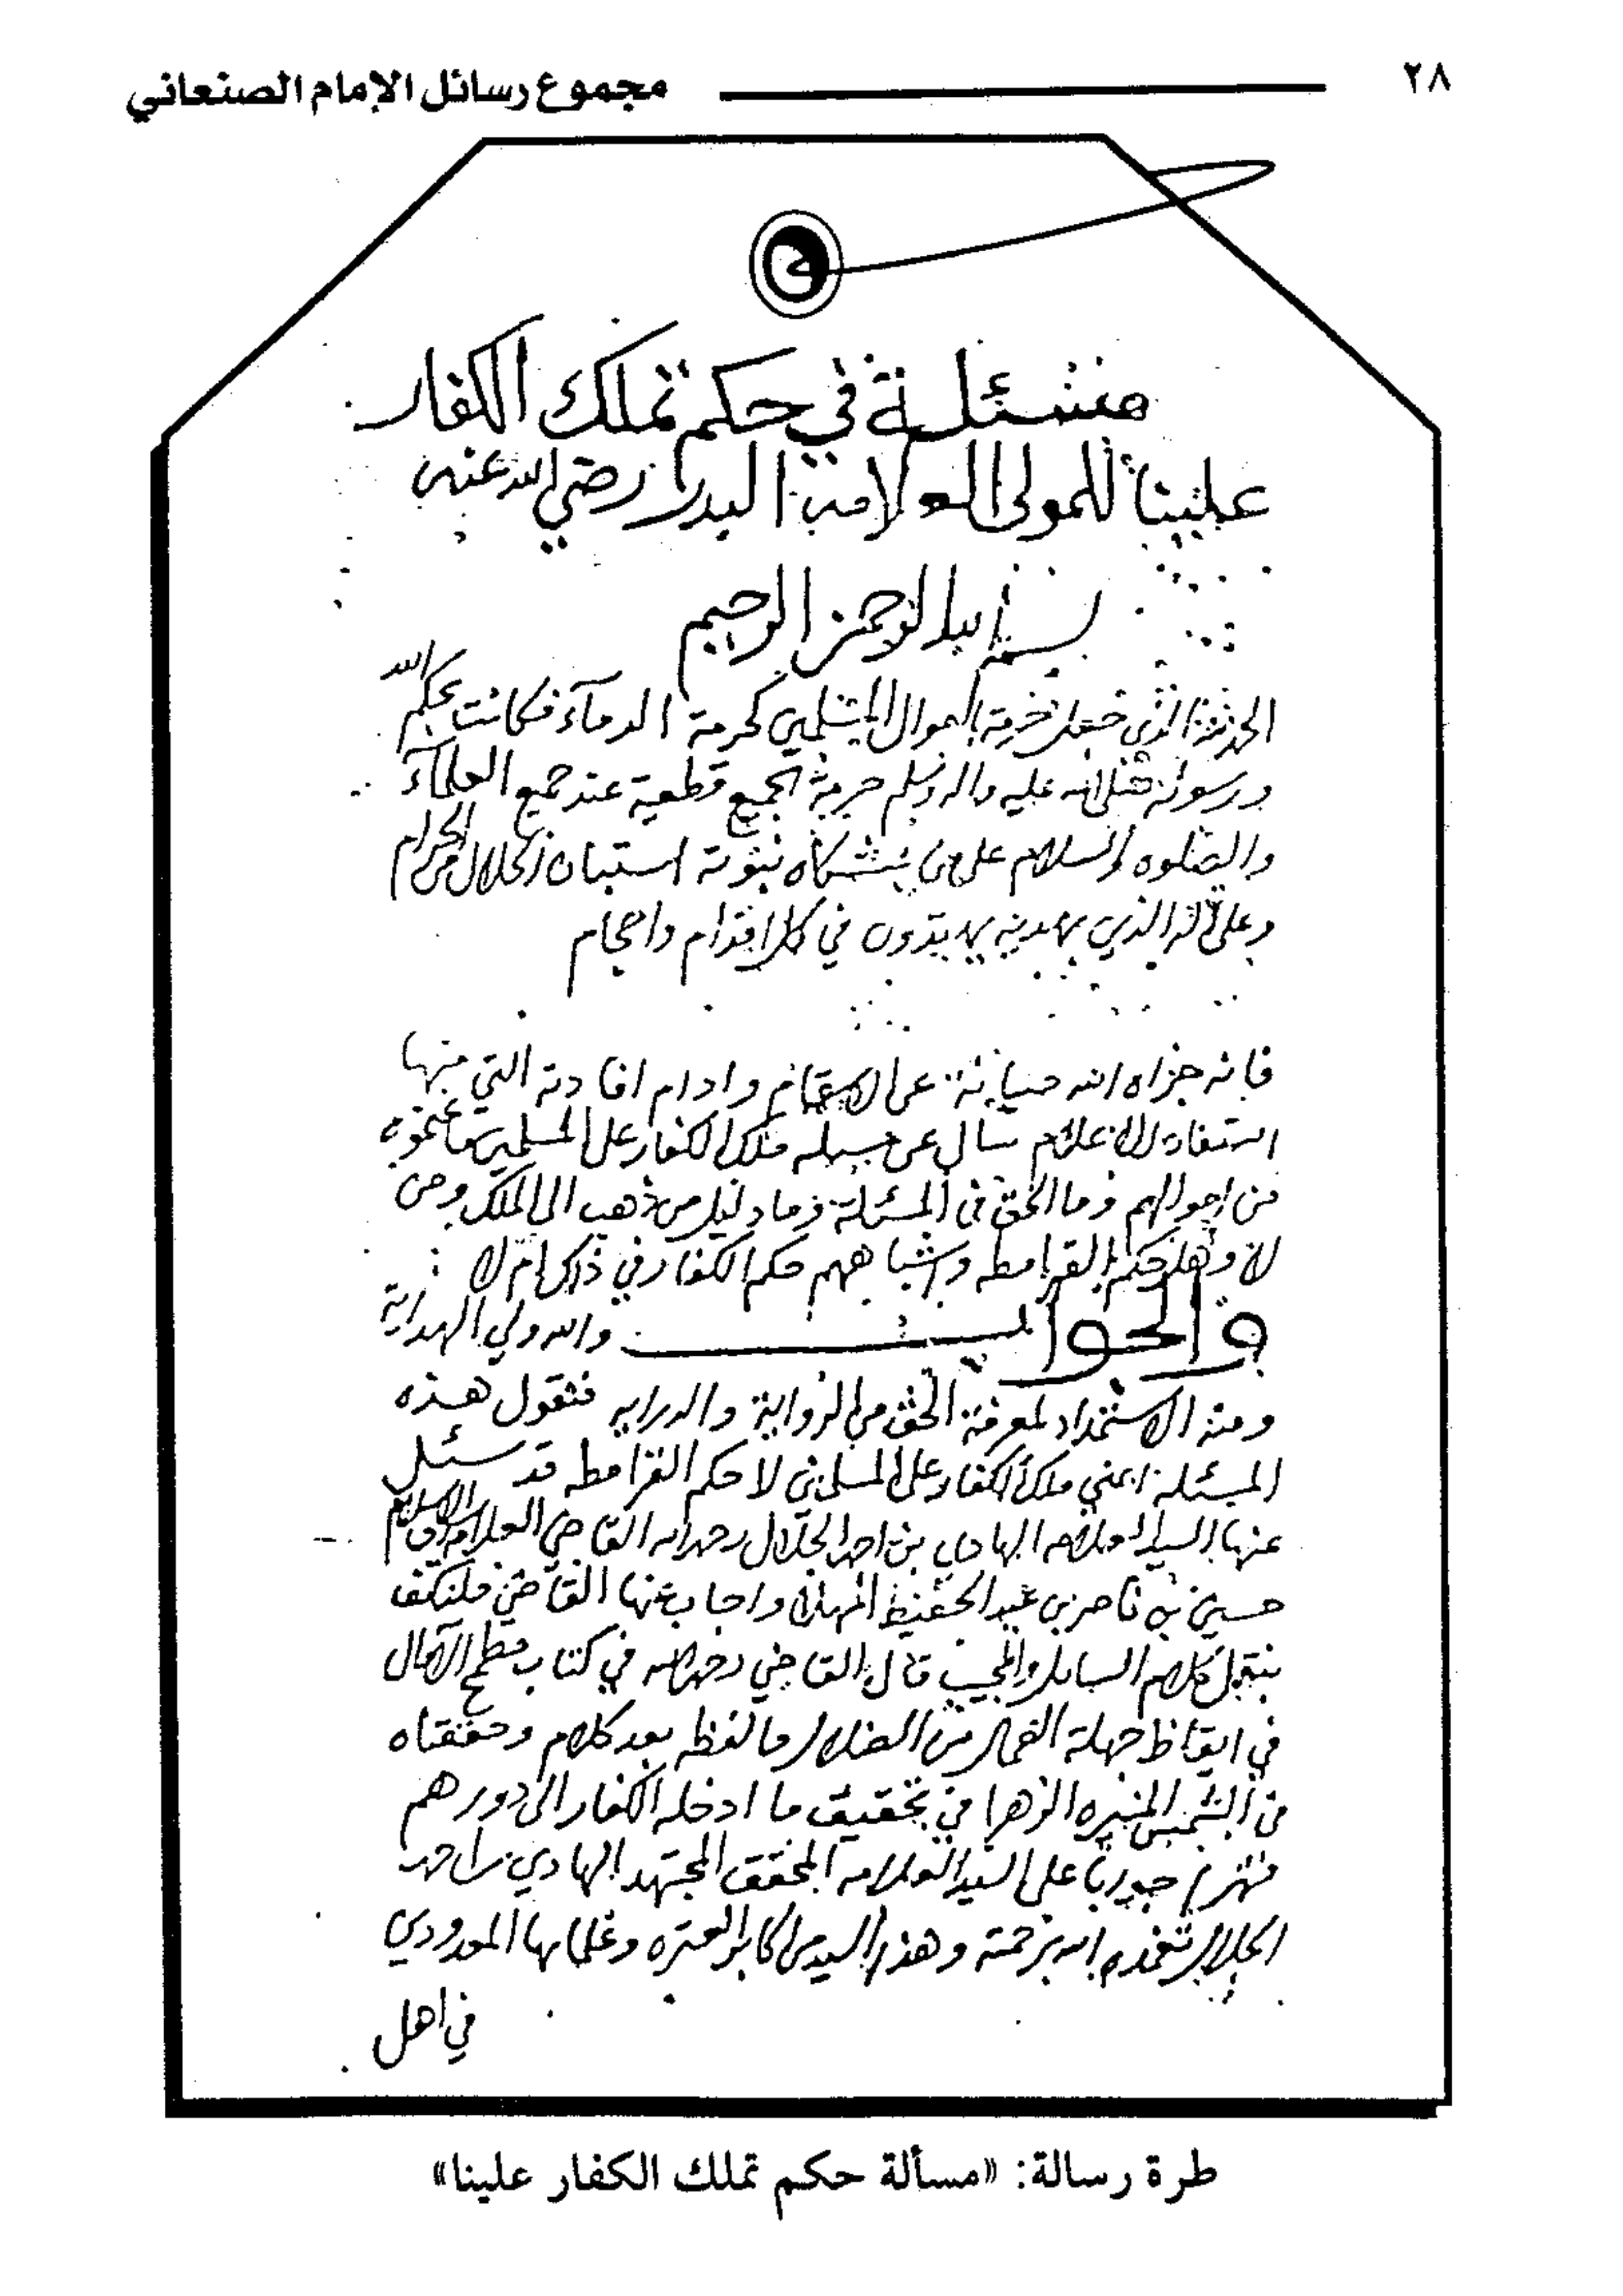 ٢٨
مجموع رسائل الإمام الصنعاني
مسئلة في حكم تملك الكفار
علينا للمولى العلامة البدر رضي الله عنه
بسم الله الرحمن الرحيم
الحمد لله الذي جعل حرمة اموال المسلمين كحرمة الدمآء فكانت بحكم الله
ورسوله صلى الله عليه واله وسلم حرمة الجميع قطعية عند جميع العلمآء
والصلوه والسلام على من بمشكاه نبوته استبان الحلال من الحرام
وعلى اله الذين بهديه يهتدون في كل اقدام واحجام
فانه جزاه الله صيانة عن الاسقام وادام افادته التي منها
استفاد الاعلام سال عن مسيله ملك الكفار على المسلمين ما غنموه
من اموالهم وما الحق في المسئلة وما دليل من ذهب الى الملك ومن
لا وهل حكم القرامطه واشباههم حكم الكفار في ذلك ام لا
والجواب والله ولي الهداية
ومنه الاستمداد لمعرفة الحق من الرواية والدرايه فنقول هذه
المسئله اعني ملك الكفار على المسلمين لا حكم القرامطه قد سئل
عنها السيد العلامه الهادي بن احمد الجلال رحمه الله القاضي العلامه شرف الاسلام
حسين بن ناصر بن عبد الحفيظ المهلا واجاب عنها القاضي فلنكتف
بنقل كلام السايل والمجيب قال القاضي رحمه الله في كتاب مطمح الآمال
في ايقاظ جهلة العمال من الضلال ما لفظه بعد كلام وحققناه
في الشمس المنيره الزهرا في تحقيق ما ادخله الكفار الى دورهم
قهرا جوابا على السيد العلامه المحقق المجتهد الهادي بن احمد
الجلال تغمده الله برحمته وهذا السيد من اكابر العتره وعلمايها المعدودي
في اهل
طرة رسالة: «مسألة حكم تملك الكفار علينا»